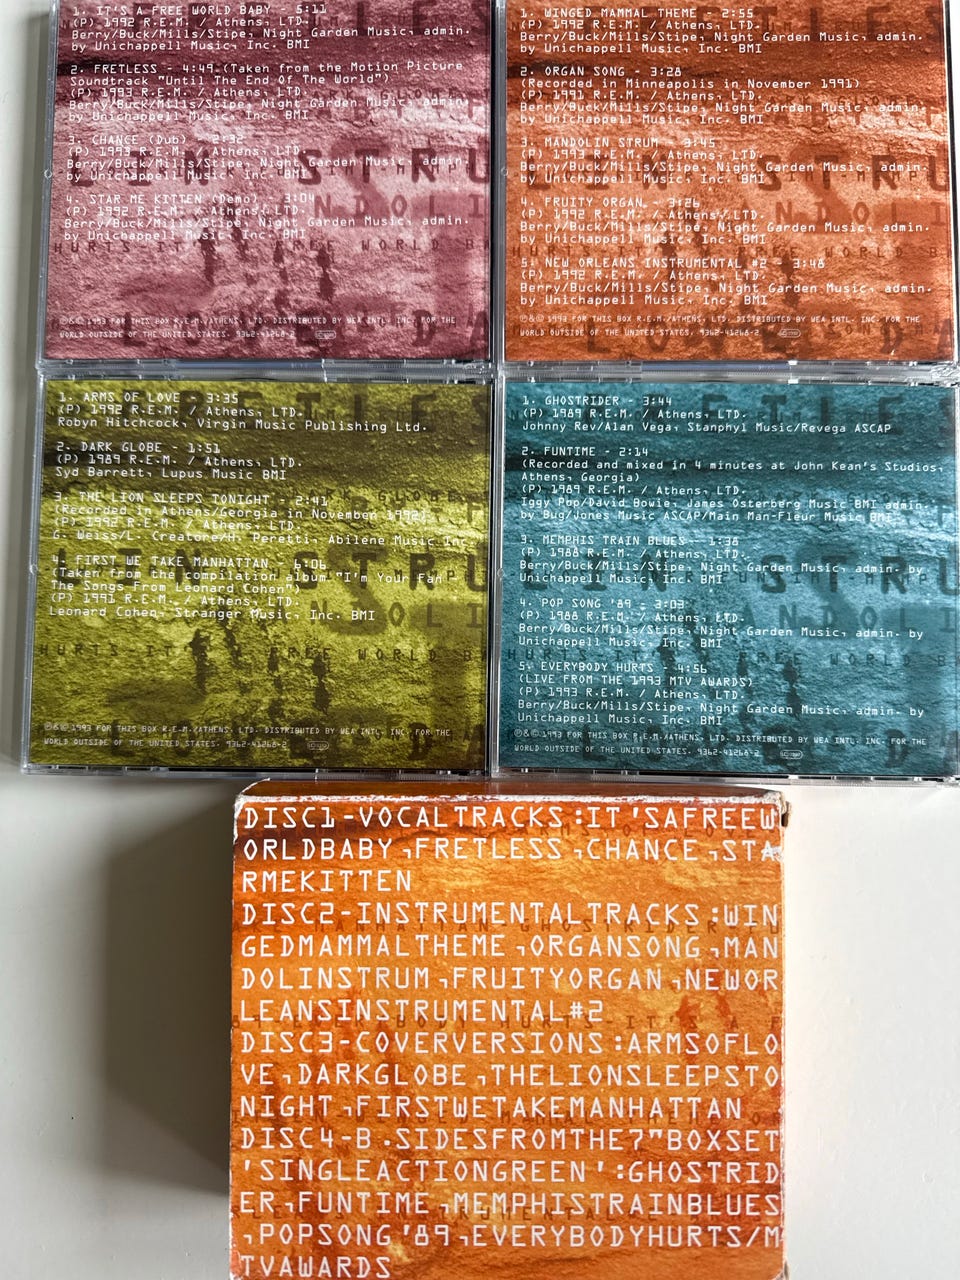 1. IT'S A FREE WORLD BABY - 5:11
(P) 1992 R.E.M. / Athens, LTD.
Berry/Buck/Mills/Stipe, Night Garden Music, admin.
by Unichappell Music, Inc. BMI
2. FRETLESS - 4:49 (Taken from the Motion Picture
Soundtrack "Until The End Of The World")
(P) 1993 R.E.M. / Athens, LTD.
Berry/Buck/Mills/Stipe, Night Garden Music, admin.
by Unichappell Music, Inc. BMI
3. CHANCE (Dub) - 2:32
(P) 1993 R.E.M. / Athens, LTD.
Berry/Buck/Mills/Stipe, Night Garden Music, admin.
by Unichappell Music, Inc. BMI
4. STAR ME KITTEN (Demo) - 3:04
(P) 1992 R.E.M. / Athens, LTD.
Berry/Buck/Mills/Stipe, Night Garden Music, admin.
by Unichappell Music, Inc. BMI
℗&© 1993 FOR THIS BOX R.E.M./ATHENS, LTD. DISTRIBUTED BY WEA INTL. INC. FOR THE
WORLD OUTSIDE OF THE UNITED STATES. 9362-41268-2
1. WINGED MAMMAL THEME - 2:55
(P) 1992 R.E.M. / Athens, LTD.
Berry/Buck/Mills/Stipe, Night Garden Music, admin.
by Unichappell Music, Inc. BMI
2. ORGAN SONG - 3:28
(Recorded in Minneapolis in November 1991)
(P) 1991 R.E.M. / Athens, LTD.
Berry/Buck/Mills/Stipe, Night Garden Music, admin.
by Unichappell Music, Inc. BMI
3. MANDOLIN STRUM - 3:45
(P) 1993 R.E.M. / Athens, LTD.
Berry/Buck/Mills/Stipe, Night Garden Music, admin.
by Unichappell Music, Inc. BMI
4. FRUITY ORGAN - 3:26
(P) 1992 R.E.M. / Athens, LTD.
Berry/Buck/Mills/Stipe, Night Garden Music, admin.
by Unichappell Music, Inc. BMI
5. NEW ORLEANS INSTRUMENTAL #2 - 3:48
(P) 1992 R.E.M. / Athens, LTD.
Berry/Buck/Mills/Stipe, Night Garden Music, admin.
by Unichappell Music, Inc. BMI
℗&© 1993 FOR THIS BOX R.E.M./ATHENS, LTD. DISTRIBUTED BY WEA INTL. INC. FOR THE
WORLD OUTSIDE OF THE UNITED STATES. 9362-41268-2
1. ARMS OF LOVE - 3:35
(P) 1992 R.E.M. / Athens, LTD.
Robyn Hitchcock, Virgin Music Publishing Ltd.
2. DARK GLOBE - 1:51
(P) 1989 R.E.M. / Athens, LTD.
Syd Barrett, Lupus Music BMI
3. THE LION SLEEPS TONIGHT - 2:41
(Recorded in Athens/Georgia in November 1992)
(P) 1992 R.E.M. / Athens, LTD.
G. Weiss/L. Creatore/H. Peretti, Abilene Music Inc.
4. FIRST WE TAKE MANHATTAN - 6:06
(Taken from the compilation album "I'm Your Fan
The Songs From Leonard Cohen")
(P) 1991 R.E.M. / Athens, LTD.
Leonard Cohen, Stranger Music, Inc. BMI
℗&© 1993 FOR THIS BOX R.E.M./ATHENS, LTD. DISTRIBUTED BY WEA INTL. INC. FOR THE
WORLD OUTSIDE OF THE UNITED STATES. 9362-41268-2
1. GHOSTRIDER - 3:44
(P) 1989 R.E.M. / Athens, LTD.
Johnny Rev/Alan Vega, Stanphyl Music/Revega ASCAP
2. FUNTIME - 2:14
(Recorded and mixed in 4 minutes at John Kean's Studios,
Athens, Georgia)
(P) 1989 R.E.M. / Athens, LTD.
Iggy Pop/David Bowie, James Osterberg Music BMI admin.
by Bug/Jones Music ASCAP/Main Man-Fleur Music BMI
3. MEMPHIS TRAIN BLUES - 1:38
(P) 1988 R.E.M. / Athens, LTD.
Berry/Buck/Mills/Stipe, Night Garden Music, admin. by
Unichappell Music, Inc. BMI
4. POP SONG '89 - 3:03
(P) 1988 R.E.M. / Athens, LTD.
Berry/Buck/Mills/Stipe, Night Garden Music, admin. by
Unichappell Music, Inc. BMI
5. EVERYBODY HURTS - 4:56
(LIVE FROM THE 1993 MTV AWARDS)
(P) 1993 R.E.M. / Athens, LTD.
Berry/Buck/Mills/Stipe, Night Garden Music, admin. by
Unichappell Music, Inc. BMI
℗&© 1993 FOR THIS BOX R.E.M./ATHENS, LTD. DISTRIBUTED BY WEA INTL. INC. FOR THE
WORLD OUTSIDE OF THE UNITED STATES. 9362-41268-2
DISC1-VOCALTRACKS:IT'SAFREEW
ORLDBABY,FRETLESS,CHANCE,STA
RMEKITTEN
DISC2-INSTRUMENTALTRACKS:WIN
GEDMAMMALTHEME,ORGANSONG,MAN
DOLINSTRUM,FRUITYORGAN,NEWOR
LEANSINSTRUMENTAL#2
DISC3-COVERVERSIONS:ARMSOFLO
VE,DARKGLOBE,THELIONSLEEPSTO
NIGHT,FIRSTWETAKEMANHATTAN
DISC4-B.SIDESFROMTHE7"BOXSET
'SINGLEACTIONGREEN':GHOSTRID
ER,FUNTIME,MEMPHISTRAINBLUES
,POPSONG'89,EVERYBODYHURTS/M
TVAWARDS